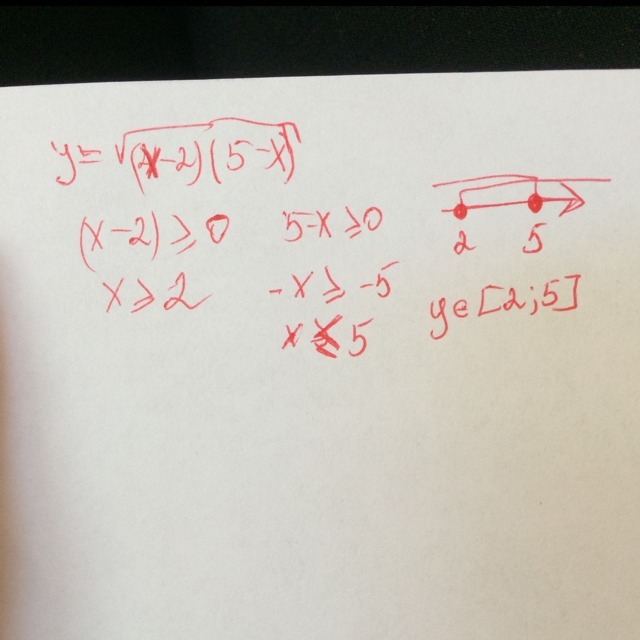 y = √(x-2)(5-x)
(x-2) ≥ 0 5-x ≥ 0
x ≥ 2 -x ≥ -5
x ≤ 5
2 5
y ∈ [2;5]